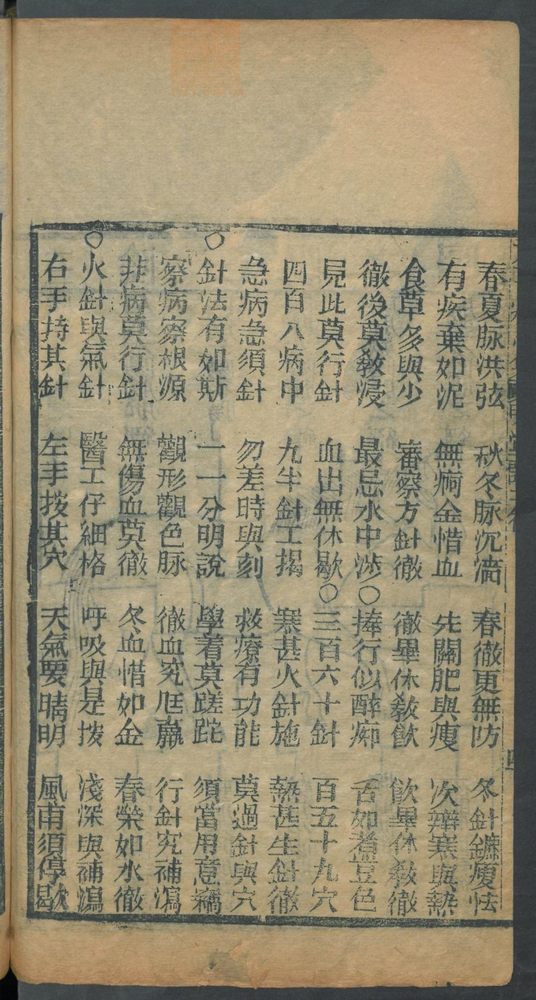 春夏脉洪弦 秋冬脉沉滴 春徹更無防 冬針鑣瘦怯
有疾棄如泥 無病金惜血 先關肥與瘦 次辨寒與熱
食草多與少 審察方針徹 徹畢休教飲 飲畢休教徹
徹後莫教浸 最忌水中涉○捧行似醉痴 舌如煮豆色
見此莫行針 血出無休歇○三百六十針 百五十九穴
四百八病中 九牛針工揭 寒甚火針施 熱甚生針徹
急病急須針 勿差時與刻 救療有功能 莫過針與穴
○針法有如斯 一一分明說 學者莫蹉跎 須當用意竊
察病察根源 觀形觀色脉 徹血究尫羸 行針究補瀉
非病莫行針 無傷血莫徹 冬血惜如金 春榮如水徹
○火針與氣針 醫工仔細格 呼吸與是拨 淺深與補瀉
右手持其針 左手拨其穴 天氣要晴明 風雨須停歇